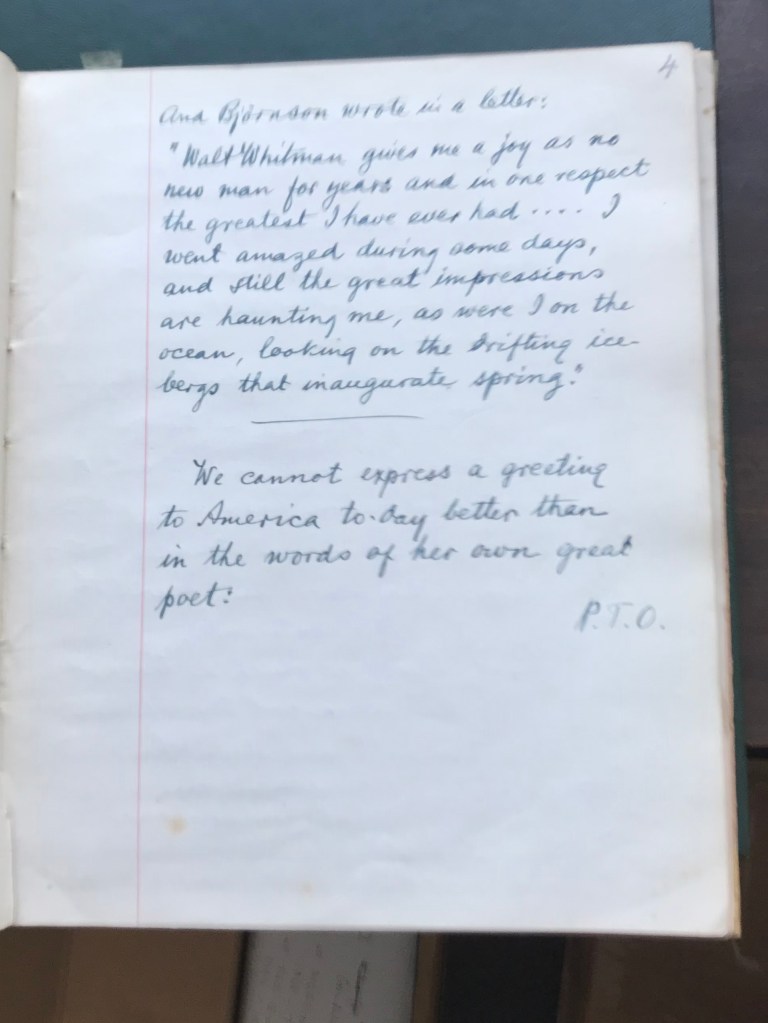 4
And Björnson wrote in a letter:
"Walt Whitman gives me a joy as no
new man for years and in one respect
the greatest I have ever had .... I
went amazed during some days,
and still the great impressions
are haunting me, as were I on the
ocean, looking on the drifting ice-
bergs that inaugurate spring."
We cannot express a greeting
to America to-day better than
in the words of her own great
poet:
P.T.O.